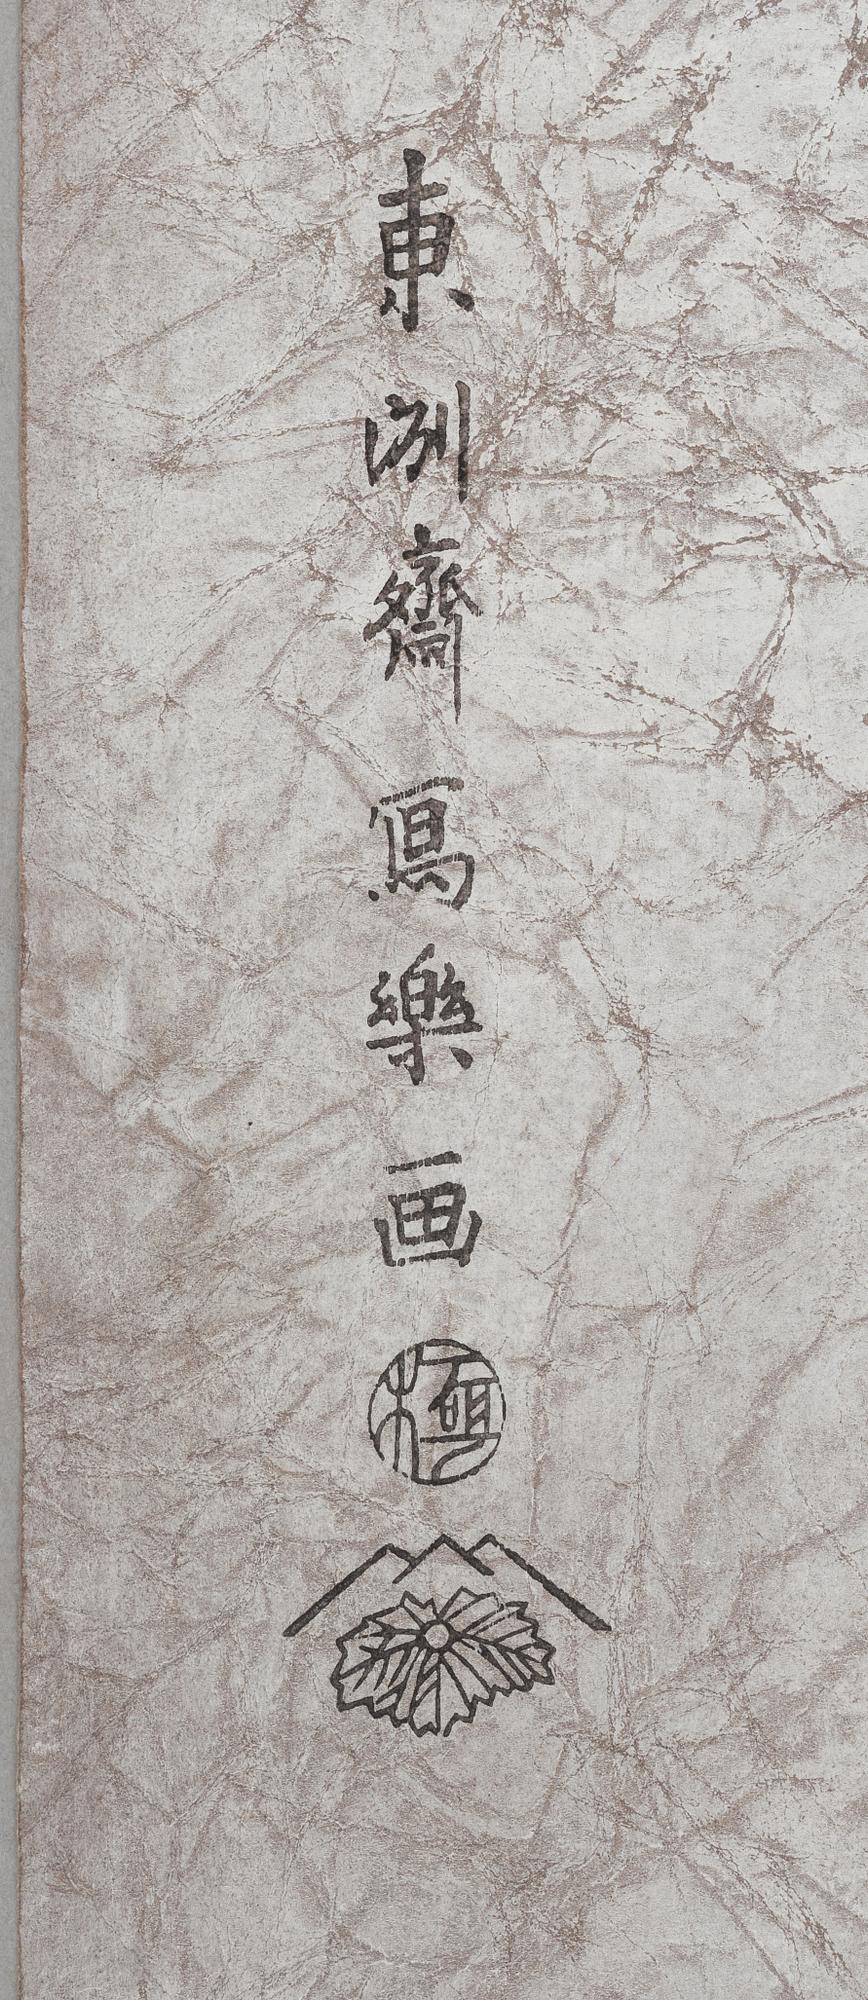 東洲齋寫樂画
極